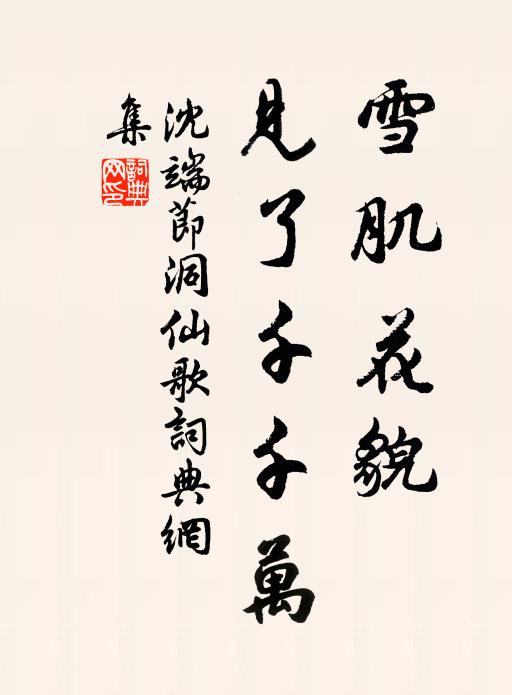 雪肌花貌
見了千千萬
沈端節洞仙歌詞典網
集
詞典網印